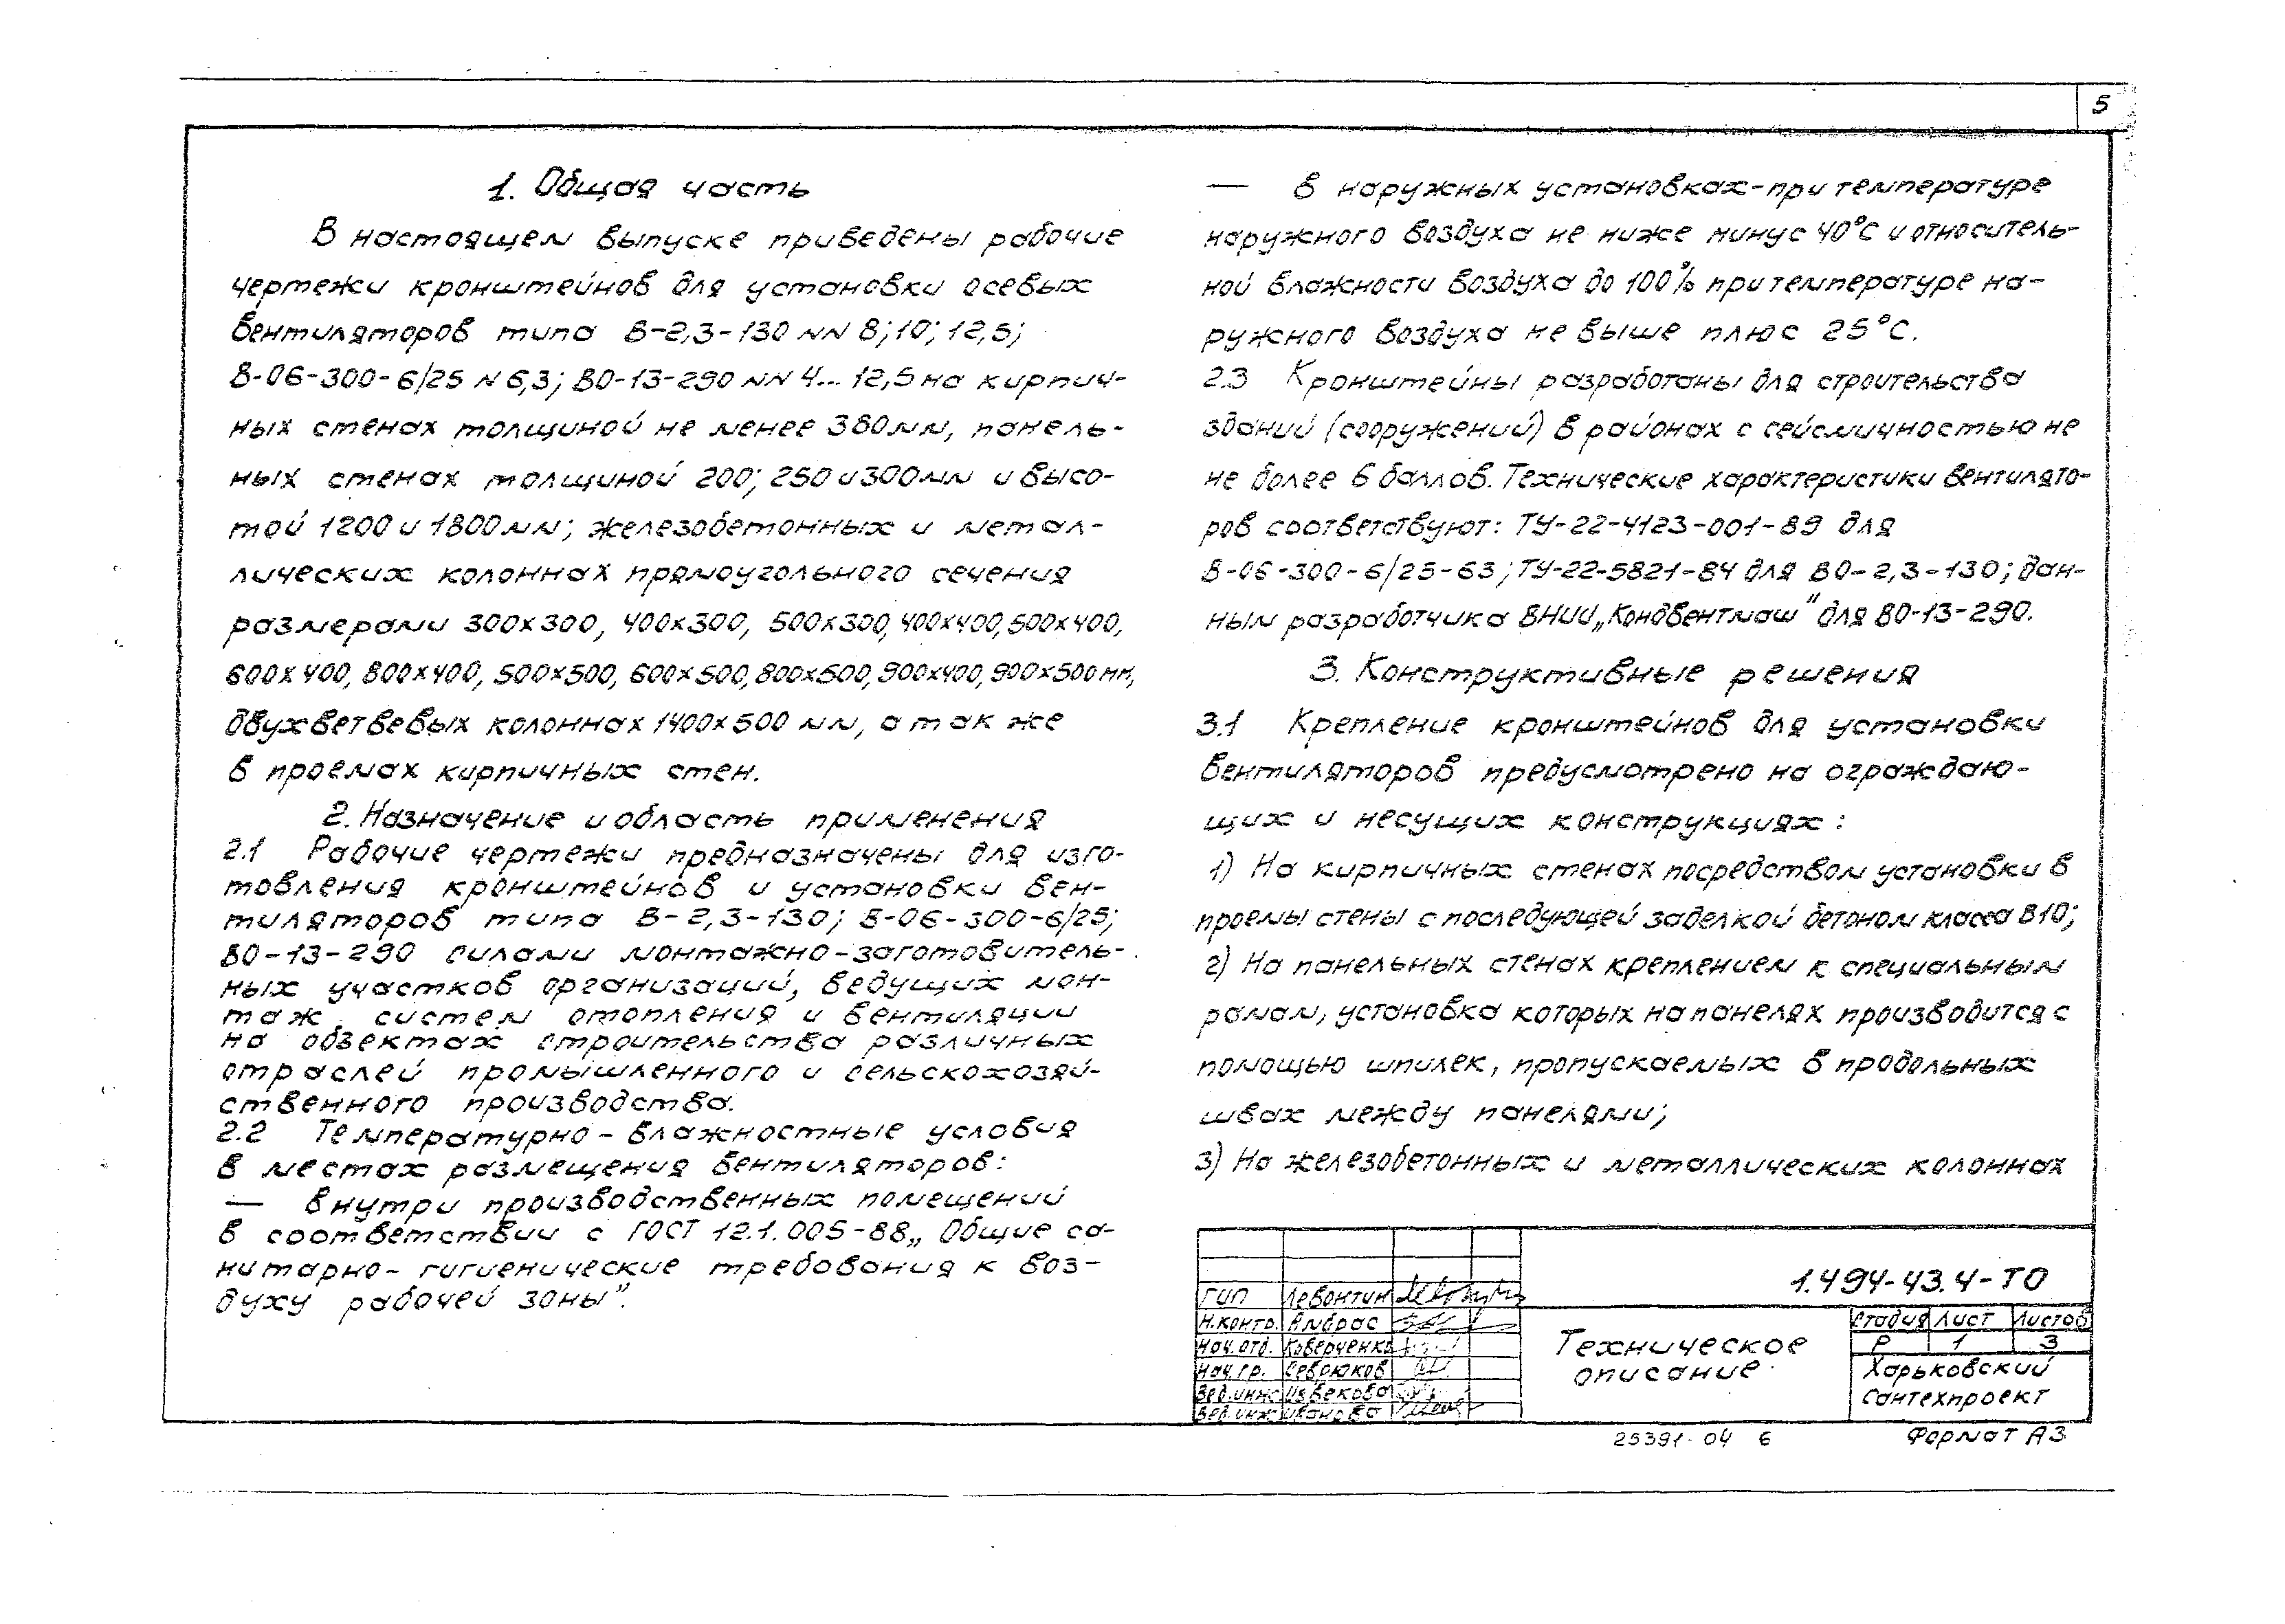 5
1. Общая часть
В настоящем выпуске приведены рабочие
чертежи кронштейнов для установки осевых
вентиляторов типа В-2,3-130 NN 8; 10; 12,5;
В-06-300-6/25 N 6,3; ВО-13-290 NN 4... 12,5 на кирпич-
ных стенах толщиной не менее 380мм, панель-
ных стенах толщиной 200; 250 и 300мм и высо-
той 1200 и 1800мм; железобетонных и метал-
лических колоннах прямоугольного сечения
размерами 300х300, 400х300, 500х300, 400х400, 500х400,
600х400, 800х400, 500х500, 600х500, 800х500, 900х400, 900х500 мм,
двухветвевых колоннах 1400х500 мм, а так же
в проемах кирпичных стен.
2. Назначение и область применения
2.1 Рабочие чертежи предназначены для изго-
товления кронштейнов и установки вен-
тиляторов типа В-2,3-130; В-06-300-6/25;
ВО-13-290 силами монтажно-заготовитель-
ных участков организаций, ведущих мон-
таж систем отопления и вентиляции
на обзектах строительства различных
отраслей промышленного и сельскохозяй-
ственного производства.
2.2 Температурно-влажностные условия
в местах размещения вентиляторов:
— внутри производственных помещений
в соответствии с ГОСТ 12.1.005-88 „Общие са-
нитарно-гигиенические требования к воз-
духу рабочей зоны".
— в наружных установках-при температуре
наружного воздуха не ниже минус 40°С и относитель-
ной влажности воздуха до 100% при температуре на-
ружного воздуха не выше плюс 25°С.
2.3 Кронштейны разработаны для строительства
зданий (сооружений) в районах с сейсмичностью не
не более 6 баллов. Технические характеристики вентилято-
ров соответствуют: ТУ-22-4123-001-89 для
В-06-300-6/25-63; ТУ-22-5821-84 для ВО-2,3-130; дан-
ным разработчика ВНИИ „Кондвентмаш" для ВО-13-290.
3. Конструктивные решения
3.1 Крепление кронштейнов для установки
вентиляторов предусмотрено на ограждаю-
щих и несущих конструкциях:
1) На кирпичных стенах посредством установки в
проемы стены с последующей заделкой бетоном класса В10;
2) На панельных стенах креплением к специальным
рамам, установка которых на панелях производится с
помощью шпилек, пропускаемых в продольных
швах между панелями;
3) На железобетонных и металлических колоннах
1.494-43.4-ТО
ГИП Левонтин
Н.контр. Амбрас
Нач.отд. Коверченко
Нач.гр. Севрюков
Вед.инж Цвекова
Вед.инж Иванова
Техническое
описание
Стадия Лист Листов
Р 1 3
Харьковский
Сантехпроект
25391-04 6
Формат А3